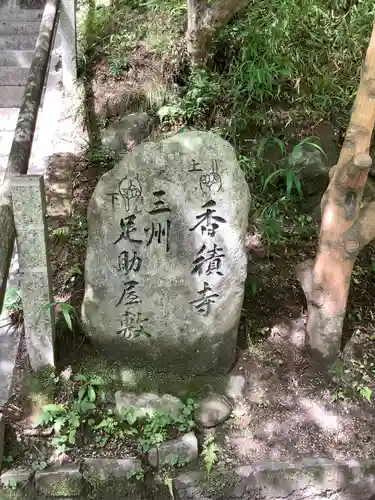 土 香積寺
三州
下 足助屋敷